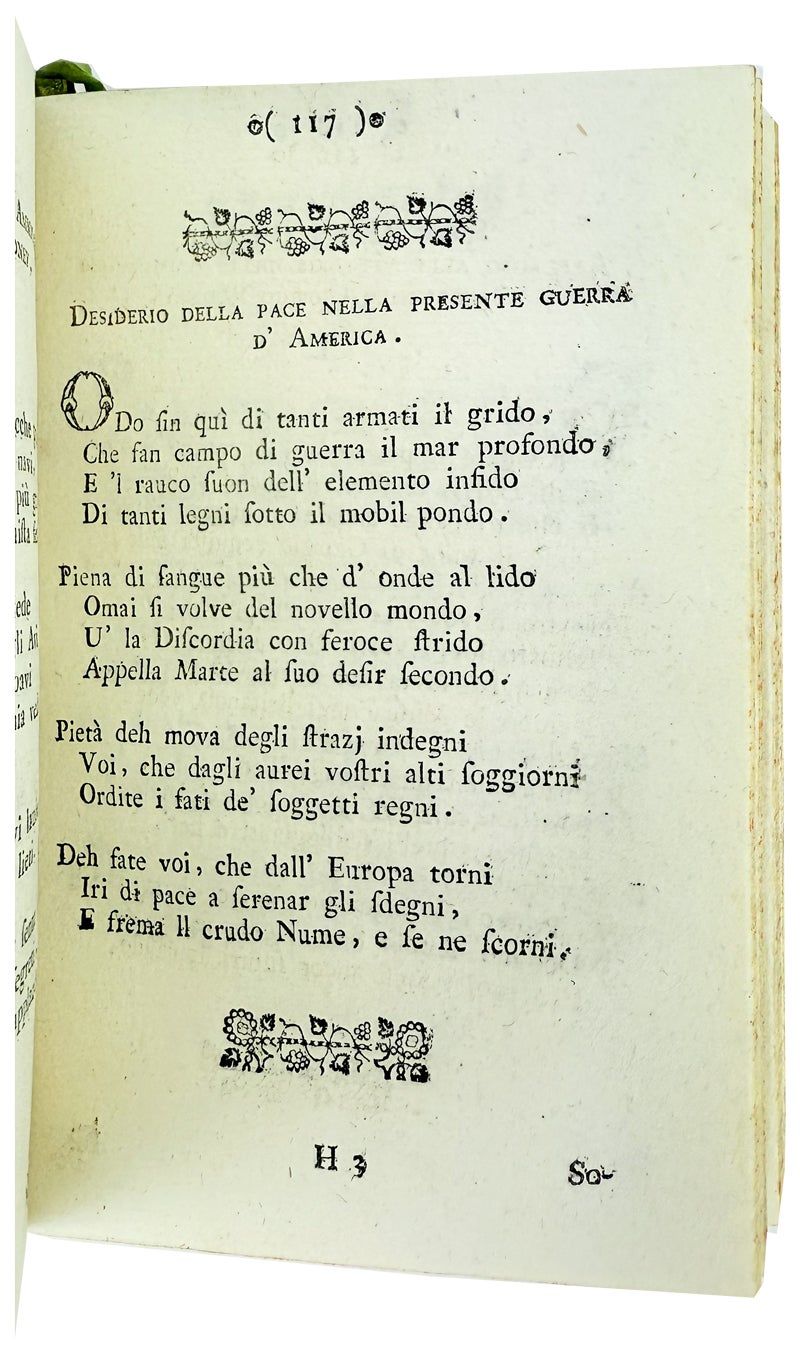 ( 117 )
DESIDERIO DELLA PACE NELLA PRESENTE GUERRA
D' AMERICA .
ODo ſin quì di tanti armati il grido ,
Che fan campo di guerra il mar profondo ,
E 'l rauco ſuon dell' elemento infido
Di tanti legni ſotto il mobil pondo .
Piena di ſangue più che d' onde al lido
Omai ſi volve del novello mondo ,
U' la Diſcordia con feroce ſtrido
Appella Marte al ſuo deſir ſecondo .
Pietà deh mova degli ſtrazj indegni
Voi , che dagli aurei voſtri alti ſoggiorni
Ordite i fati de' ſoggetti regni .
Deh fate voi , che dall' Europa torni
Iri di pace a ſerenar gli ſdegni ,
E frema il crudo Nume , e ſe ne ſcorni .
H 3
So-